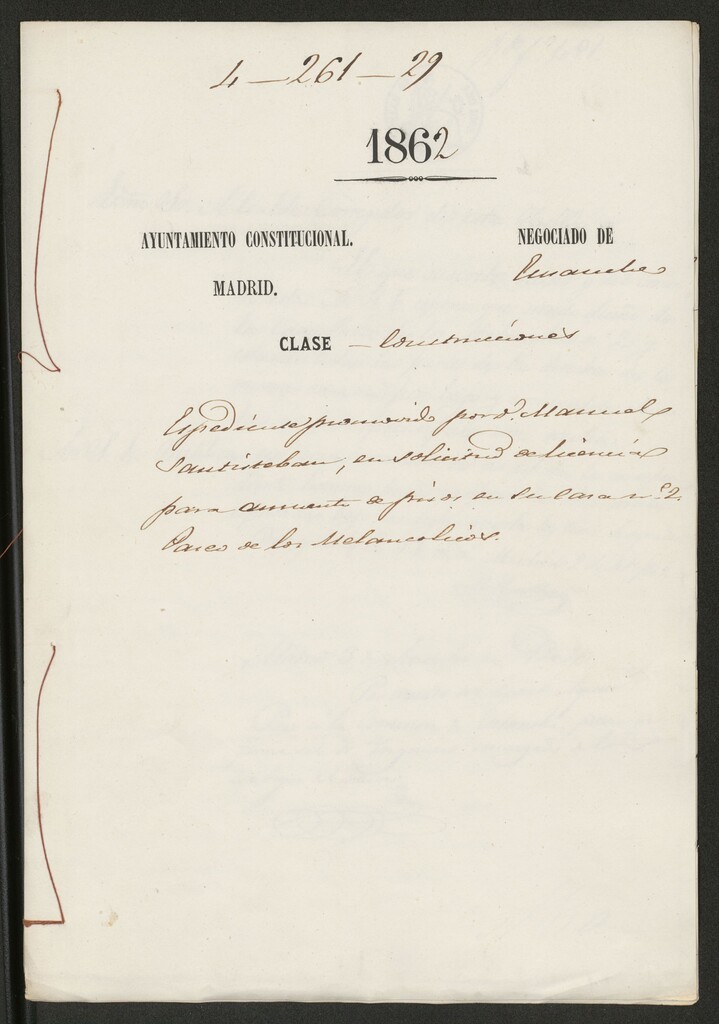 4 — 261 — 29
1862
AYUNTAMIENTO CONSTITUCIONAL.
MADRID.
NEGOCIADO DE
Ensanche
CLASE — Construcciones
Espediente promovido por Dn. Manuel
Santisteban, en solicitud de licencia
para aumento de pisos en su casa nº 2.
Paseo de los Melancolicos.